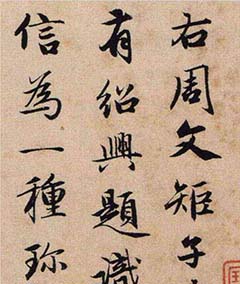 右周文矩子
有紹興題識
信為一種珎